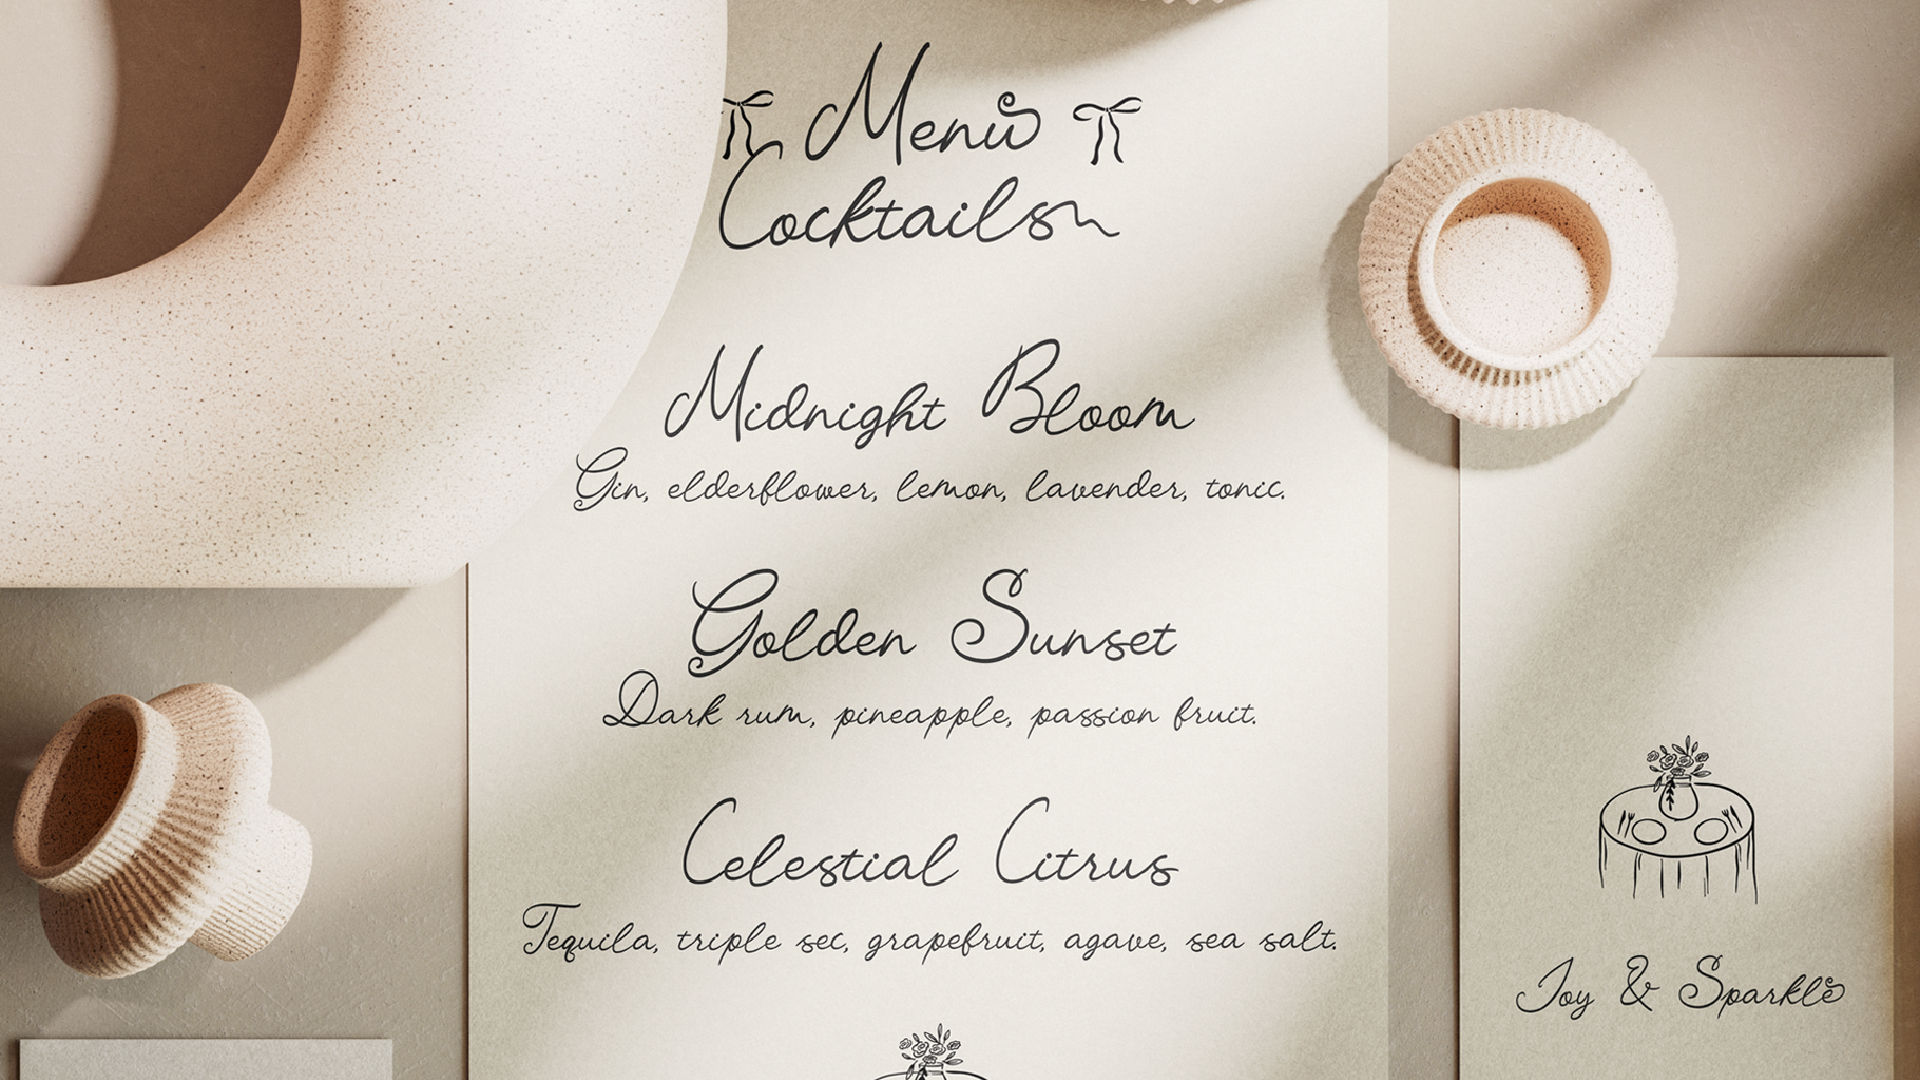 Menu
Cocktails
Midnight Bloom
Gin, elderflower, lemon, lavender, tonic.
Golden Sunset
Dark rum, pineapple, passion fruit.
Celestial Citrus
Tequila, triple sec, grapefruit, agave, sea salt.
Joy & Sparkle